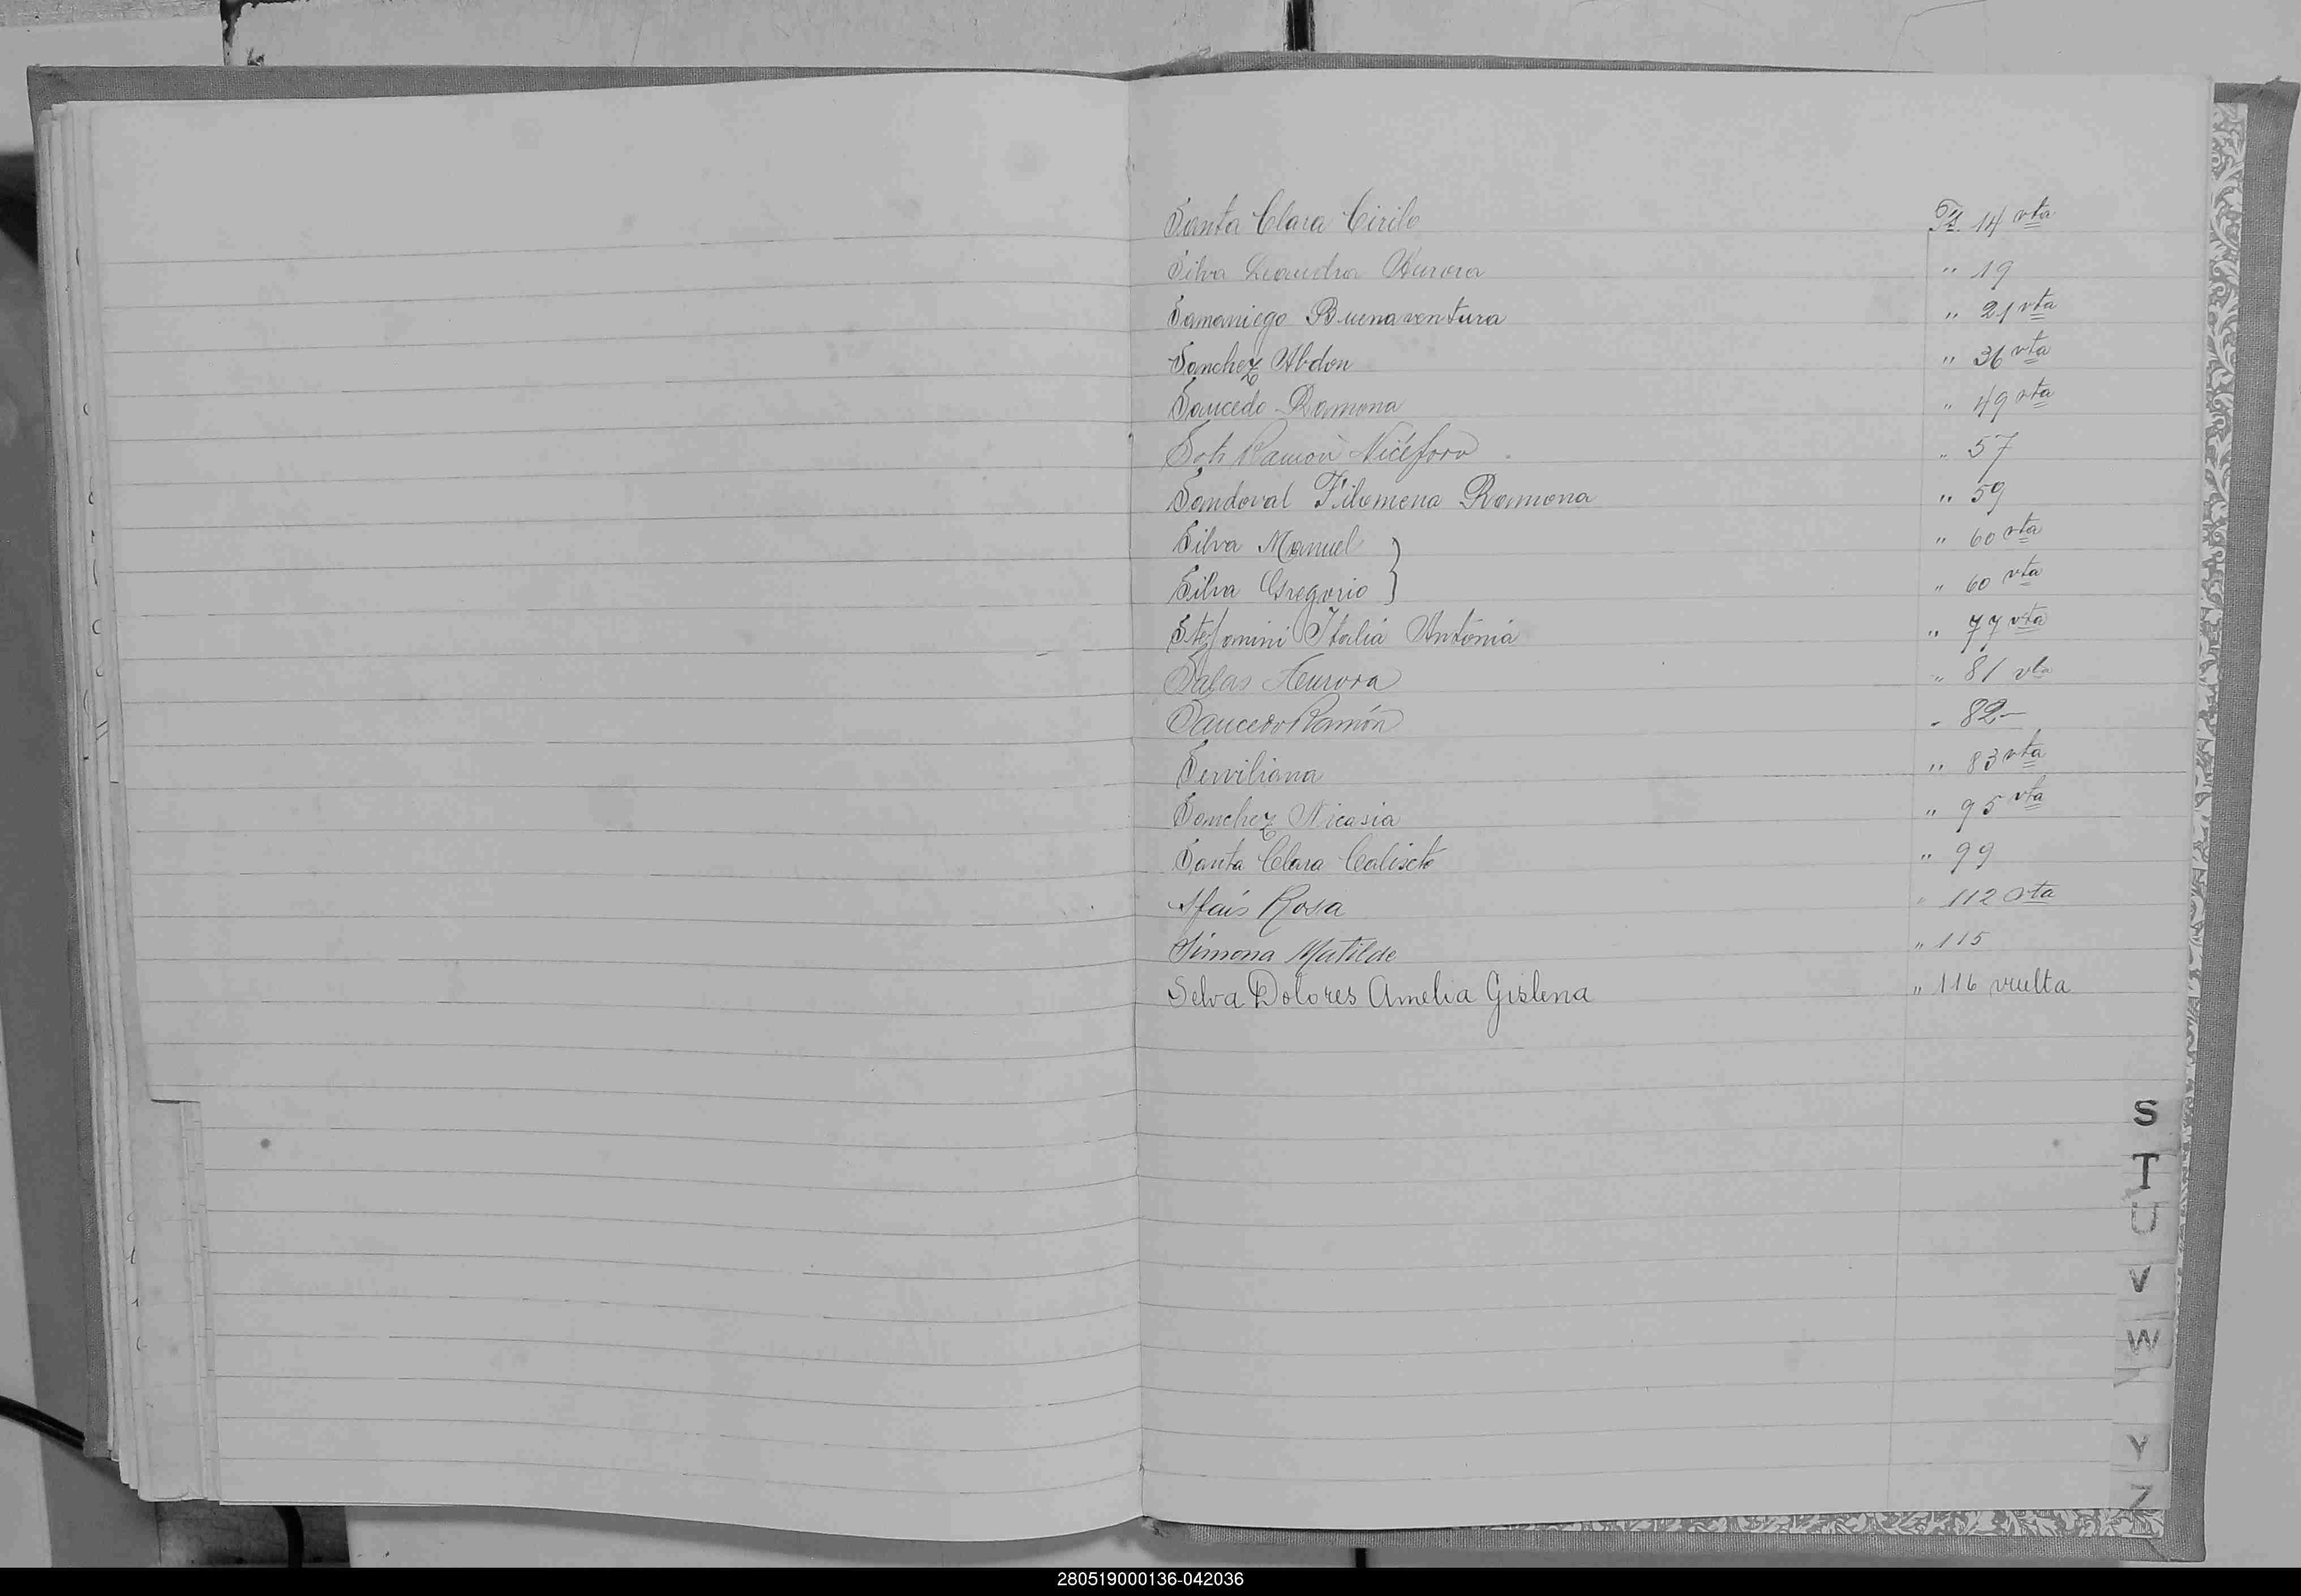 Santa Clara Cirilo Fs. 14 vta
Silva Leandra Aurora " 19
Samaniego Buenaventura " 21 vta
Sanchez Abdon " 36 vta
Saucedo Ramona " 49 vta
Ramón Nicéforo " 57
Sandoval Filomena Ramona " 59
Silva Manuel " 60 vta
Silva Gregorio " 60 vta
Stefanini Italia Antonia " 77 vta
Salas Aurora " 81 vta
Saucedo Ramón " 82-
Serviliana " 83 vta
Sanchez Nicasia " 95 vta
Santa Clara Calixto " 99
Sfais Rosa " 112 vta
Simona Matilde " 115
Selva Dolores Amelia Gislena " 116 vuelta
S
T
U
V
W
Y
Z
280519000136-042036